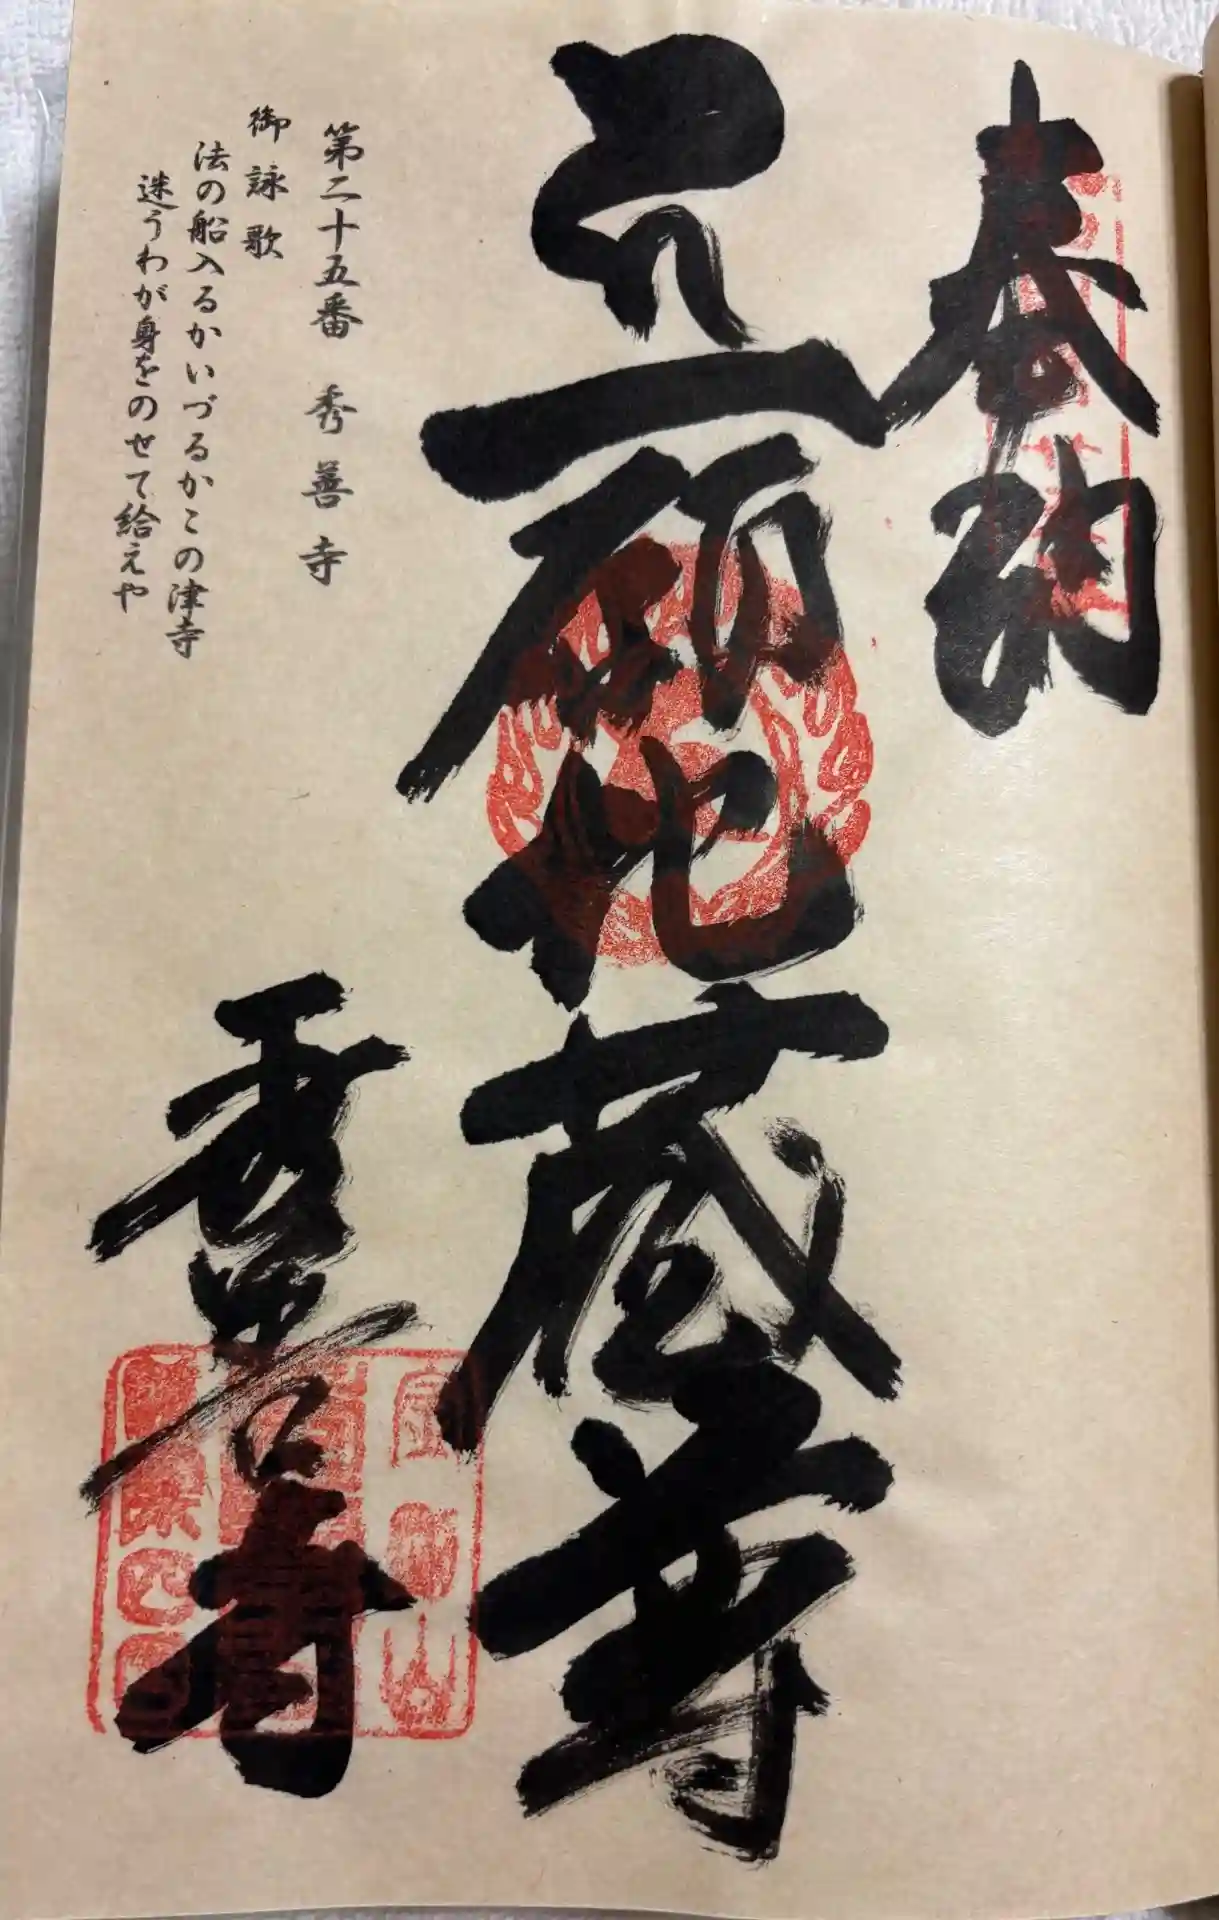 奉納
ह 一願地蔵尊
第二十五番 秀善寺
御詠歌
法の船入るかいづるかこの津寺
迷うわが身をのせて給えや
秀善寺